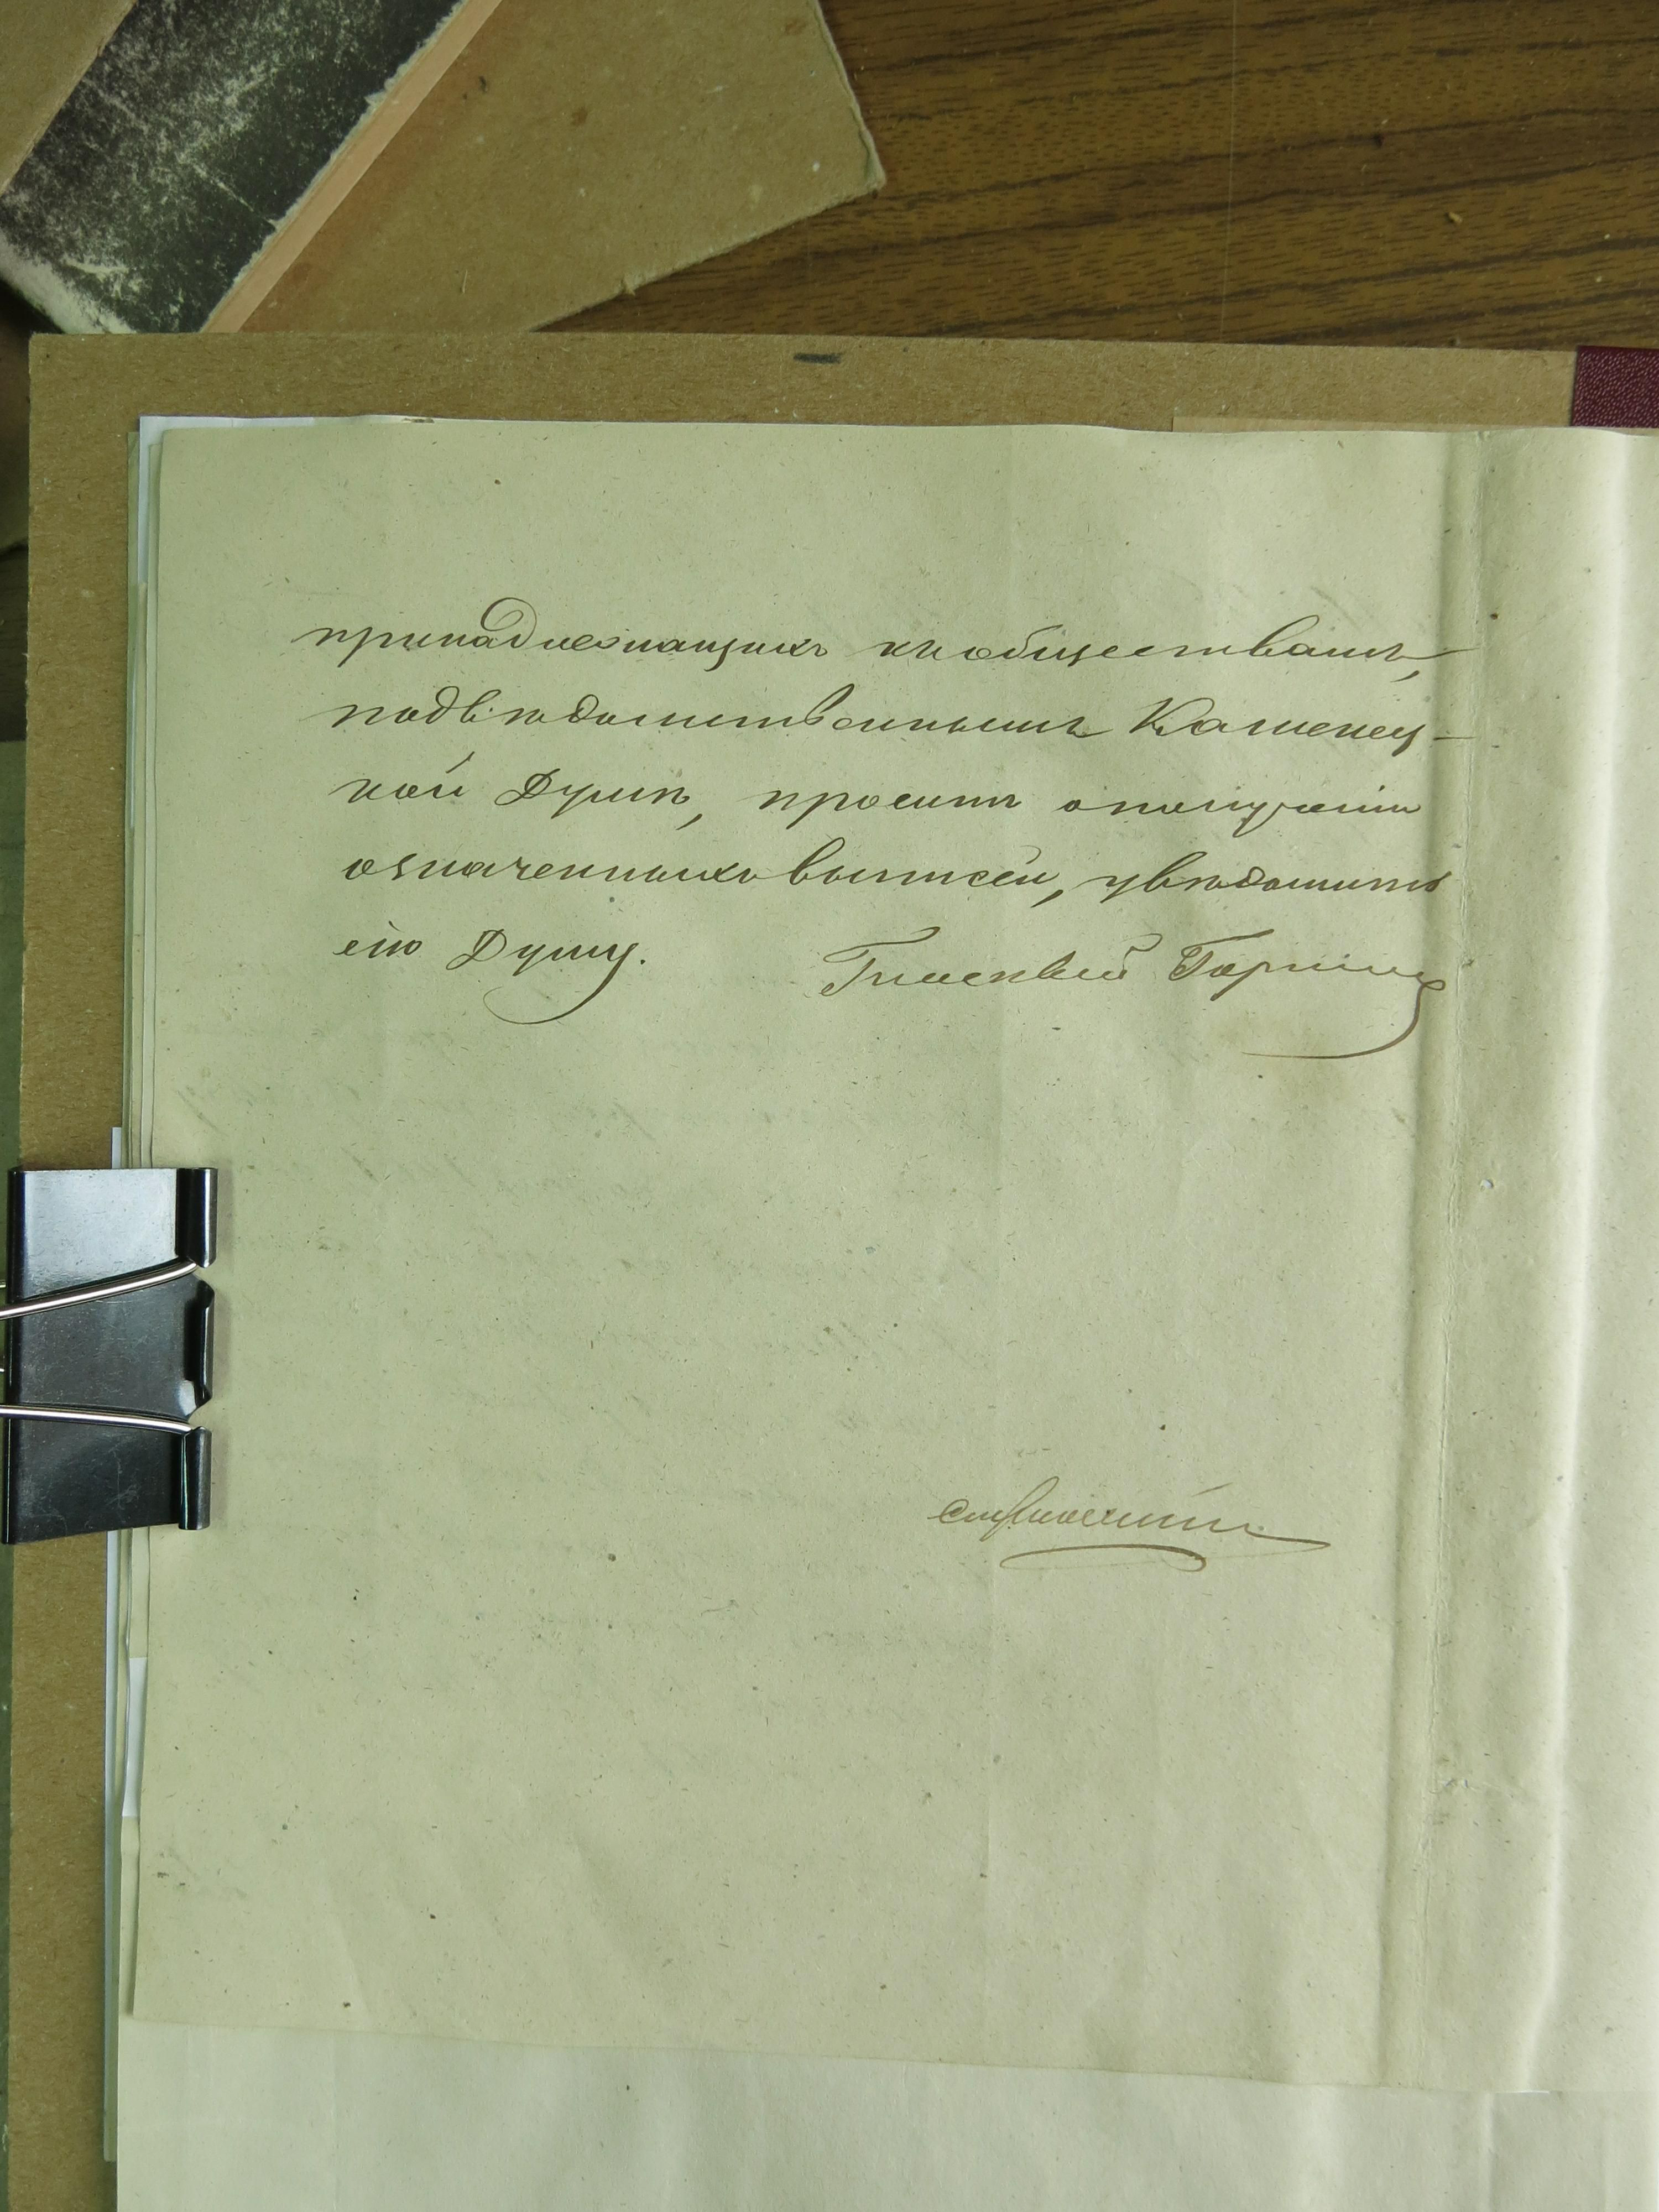 принадлежащихъ къ обществамъ,
подвѣдомственнымъ Каменец-
кой Думѣ, проситъ о получении
означенныхъ выписей, увѣдомить
ею Думу.